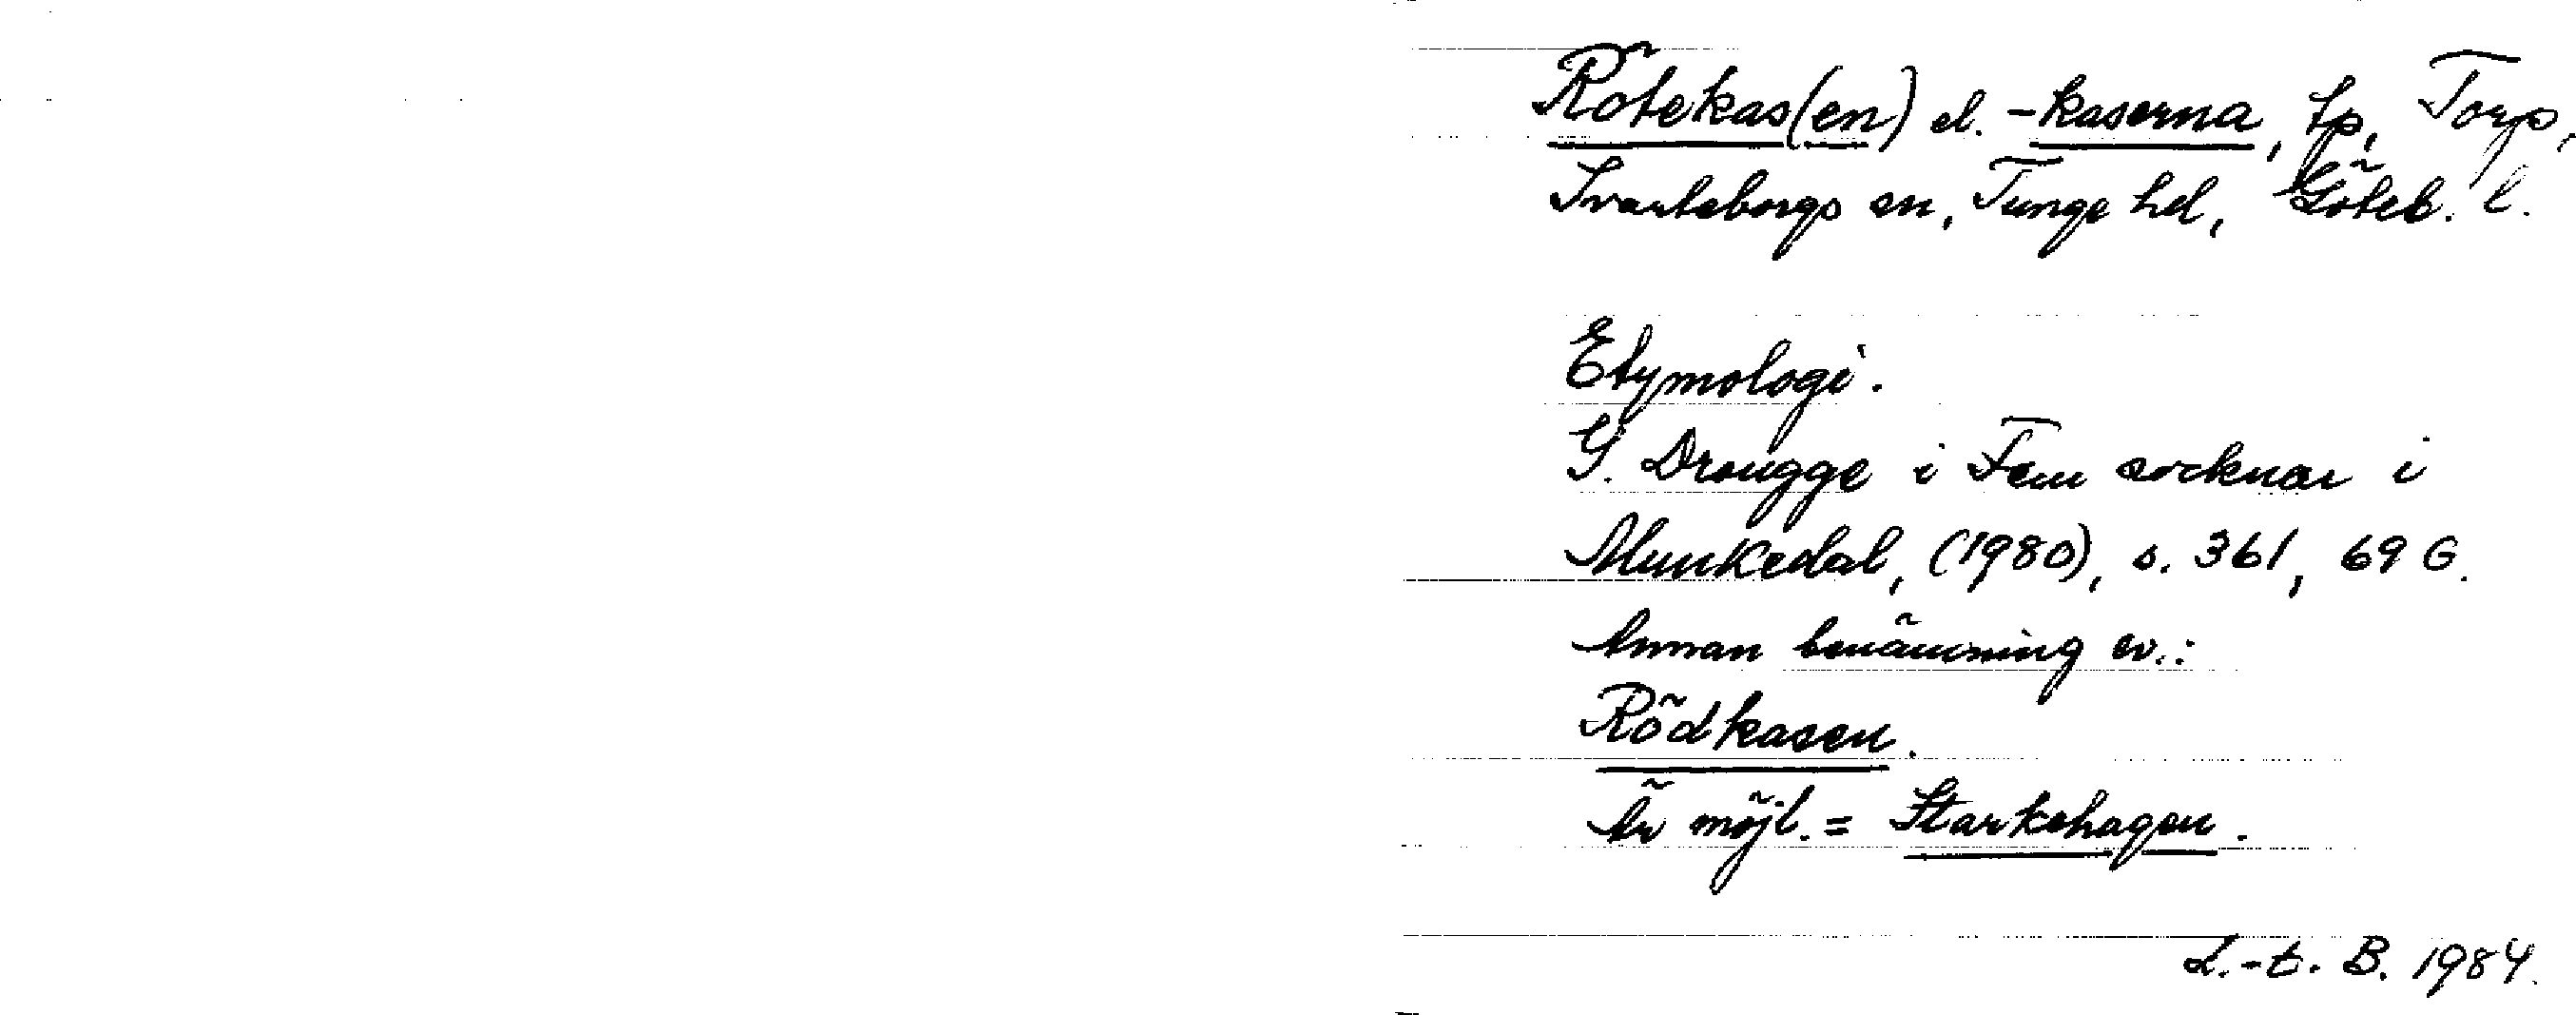 Rötekas(en) el. -kaserna, tp, Torp,
Svarteborgs sn, Tunge hd, Göteb. l.
Etymologi.
G. Drougge i Fem socknar i
Munkedal, (1980), s. 361, 69 G.
Annan benämning ev.:
Rödkasen.
Är möjl. = Starkehagen.
L.-t. B. 1984.